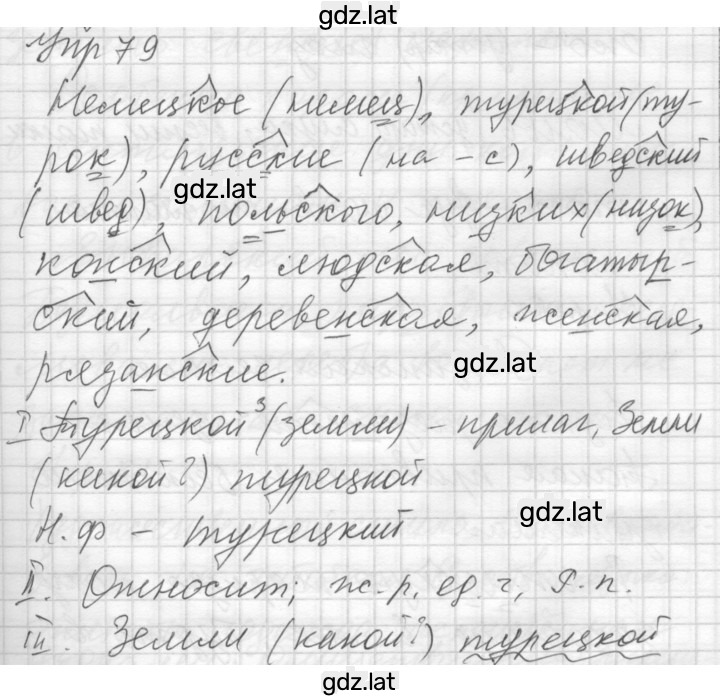 gdz.lat
Упр 79
Немецкое (немец), турецкой (ту-
рок), русские (на -с), шведский
gdz.lat
(швед), польского, низких (низок),
конский, людская, богатыр-
ский, деревенская, женская,
gdz.lat
рязанские.
I Турецкой³ (земли) - прилаг, Земли
(какой?) турецкой
gdz.lat
Н.ф - турецкий
II. Относит; ж.р, ед.ч, Р.п.
III. Земли (какой?) турецкой
gdz.lat